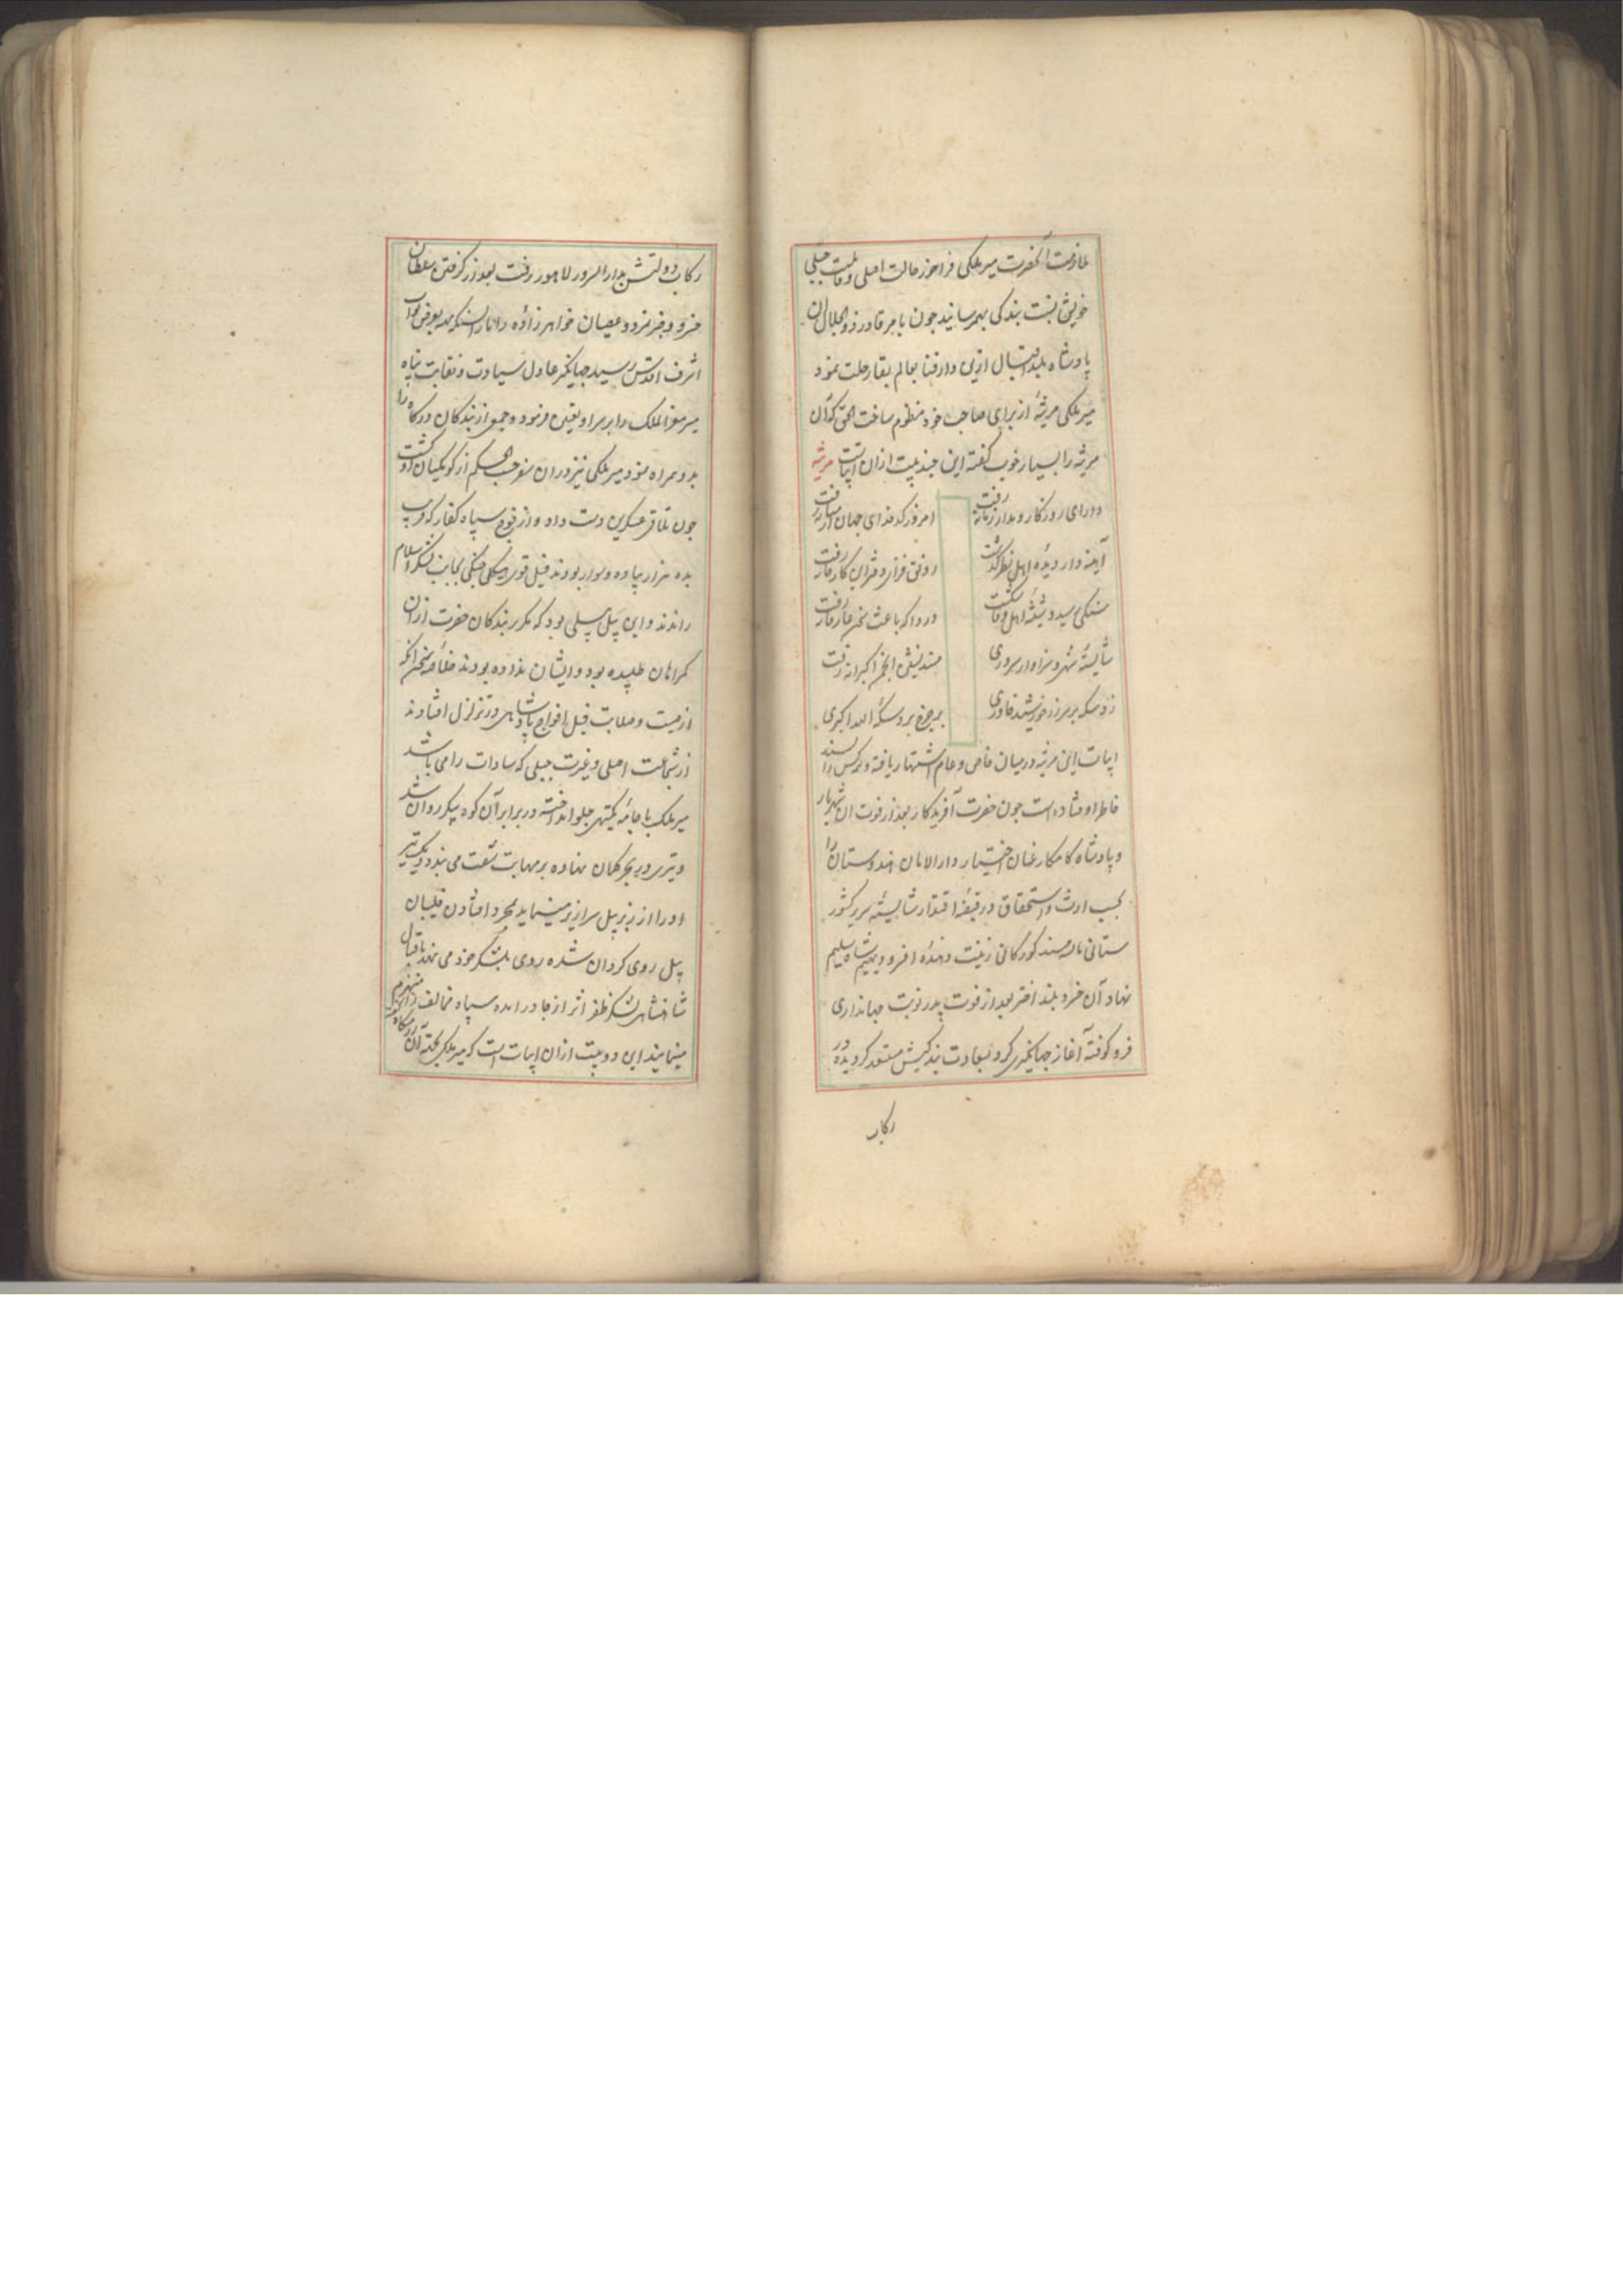 ملازمت آنحضرت میر ملکی فراخور حالت اصلی و قابلیت جبلی
خویش نسبت بندگی بهم رسانید چون بامر قادر ذوالجلال آن
پادشاه بلند اقبال ازین دار فنا بعالم بقا رحلت نمود
میر ملکی مرثیهٔ از برای صاحب خود منظوم ساخت الحق که آن
مرثیه را بسیار خوب گفته این چند بیت ازان ابیاتست مرثیه
دارای روزگار و مدار زمانه رفت
امروز کدخدای جهان از میانه رفت
آینه دار دیدهٔ اهل نظر گذشت
رونق فزای دفتر این کارخانه رفت
سنگی رسید و شیشهٔ اهل وفا شکست
دردا که باعث
شایستهٔ شهی و سزاوار سروری
مسند نشین انجم اکبر
زد سکه بر سر زر خورشید خاوری
بر چرخ برد سکهٔ الله اکبری
ابیات این مرثیه در میان خاص و عام اشتهار یافته و هر کس را پسند
خاطر افتاده است چون حضرت آفریدگار بعد از فوت آن شهریار
و پادشاه کامکار عنان اختیار دارالامان هندوستان را
بحسب ارث و استحقاق در قبضهٔ اقتدار شایستهٔ سریر کشور
ستانی مسند گورکانی زینت دهندهٔ افسر و دیهیم شاه سلیم
نهاد آن خسرو بلند اختر بعد از فوت پدر نوبت جهانداری
فرو کوفته آغاز جهانگیری کرد بسعادت بندگیش مستعد گردیده در
رکاب
رکاب دولتش بدارالسرور لاهور رفت بعد از گرفتن سلطان
خسرو و خبر تمرد و عصیان خواهرزاده رانا بعرض نواب
اشرف اقدس رسید جهانگیر عادل سیادت و نقابت پناه
میر معزالملک را بر سر او تعین فرمود و جمعی از بندگان درگاه را
بدو همراه نمود میر ملکی نیز دران سفر حسب الحکم از کومکیان او گشت
چون تلاقی عسکرین دست داد و از فوج سپاه کفار که قریب
بده هزار پیاده و سوار بودند فیل قوی هیکلی جنگی بجانب لشکر اسلام
راندند و این پیل پیلی بود که مکرر بندگان حضرت ازان
گمراهان طلبیده بود و ایشان نداده بودند
از هیبت و صلابت فیل افواج پادشاهی در تزلزل افتادند
از شجاعت اصلی و غیرت جبلی که سادات را می باشد
میر ملکی با جامهٔ یکتهی جلو انداخته در برابر آن کوه پیکر روان شد
و تیری در بحر کمان نهاده بر مهابت شست می بندد و بیک تیر
او را از زبر پیل سرازیر مینماید بمجرد افتادن فیلبان
پیل روی گردان شده روی بلشکر خود می نهد باقبال
شاهنشاهی لشکر ظفر اثر از جا درآمده سپاه مخالف را منهزم
مینمایند این دو بیت ازان ابیات است که میر ملکی بجهة آن